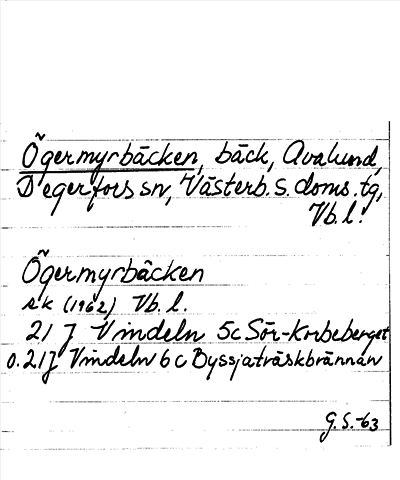 Ögermyrbäcken, bäck, Avalund,
Degerfors sn, Västerb. s. doms. tg,
Vb. l.
Ögermyrbäcken
ek (1962) Vb. l.
21 J Vindeln 5c Sör-Korbeberget
o. 21 J Vindeln 6c Byssjaträskbrännan
G. S. -63